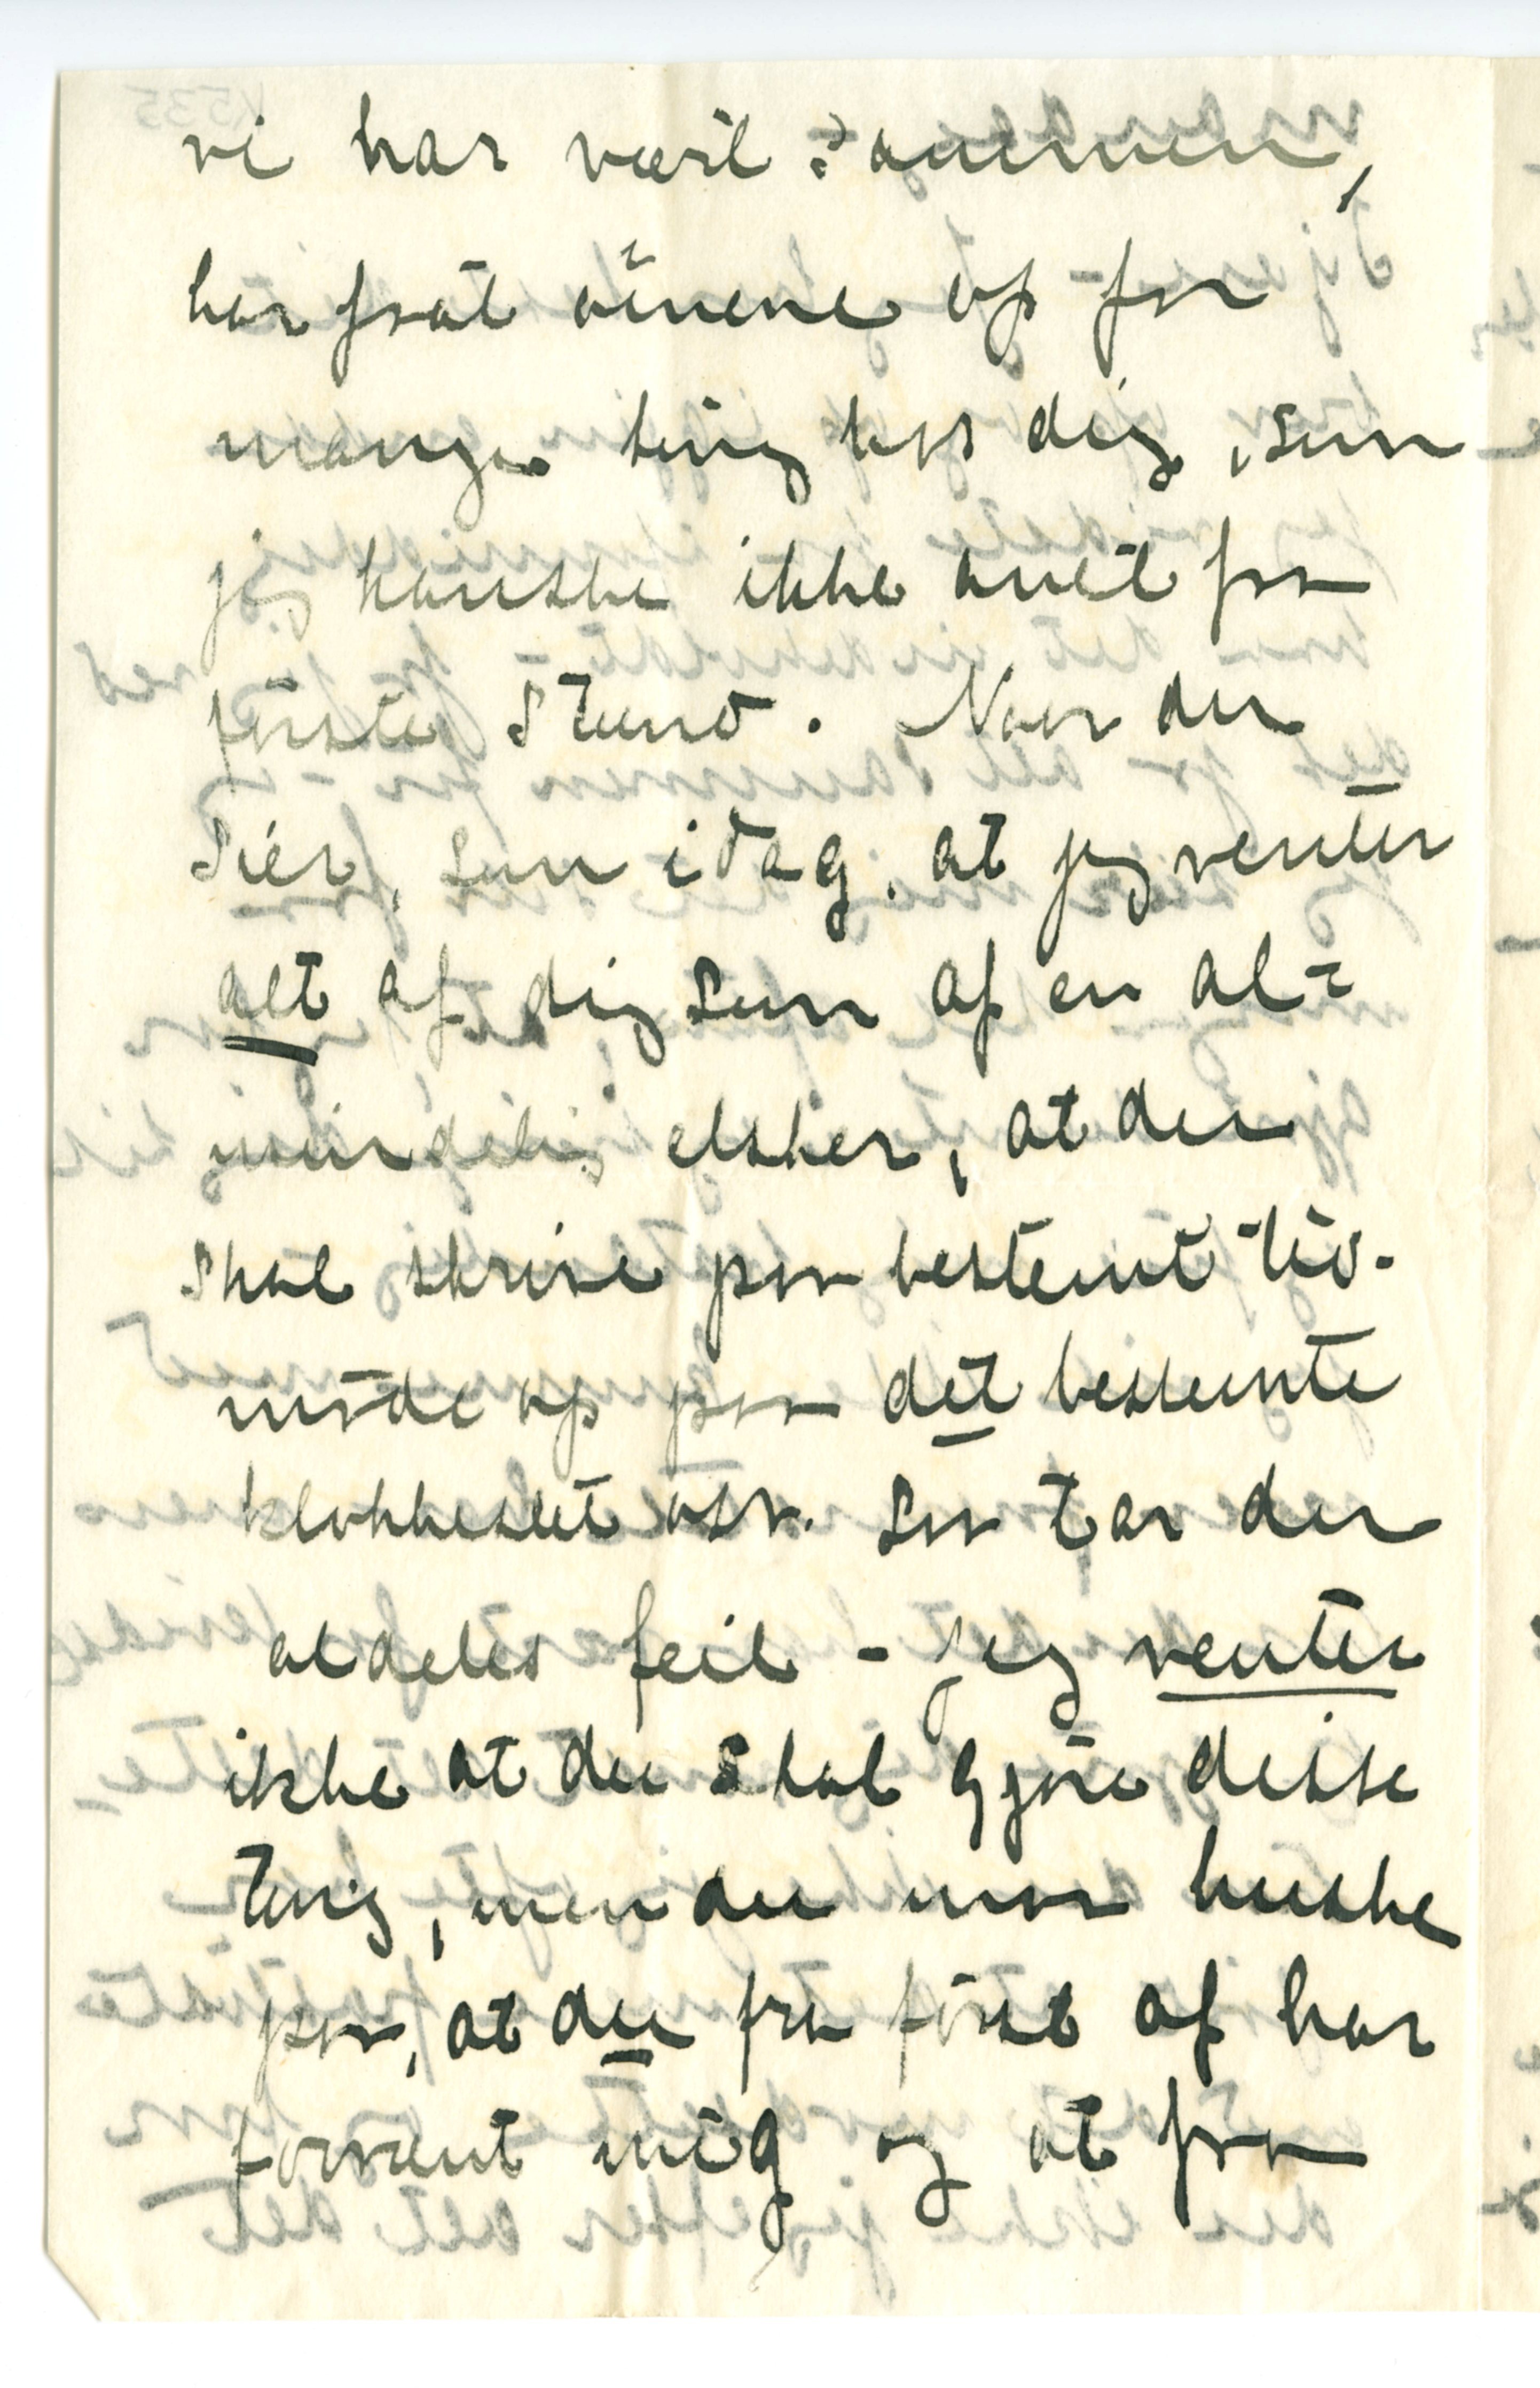 vi har været sammen,
har faat öinene op for
mange ting hos dig, som
jeg kanske ikke anet fra
förste Stund. Naar du
Sier, som idag, at jeg venter
alt af dig som af en al=
mindelig elsker, at du
skal skrive paa bestemt tid.
møde op paa det bestemte
klokkeslet osv. saa tar du
aldeles feil - jeg venter
ikke at du skal gjöre disse
ting, men du maa huske
paa, at du fra först af har
forvænt mig og at fra